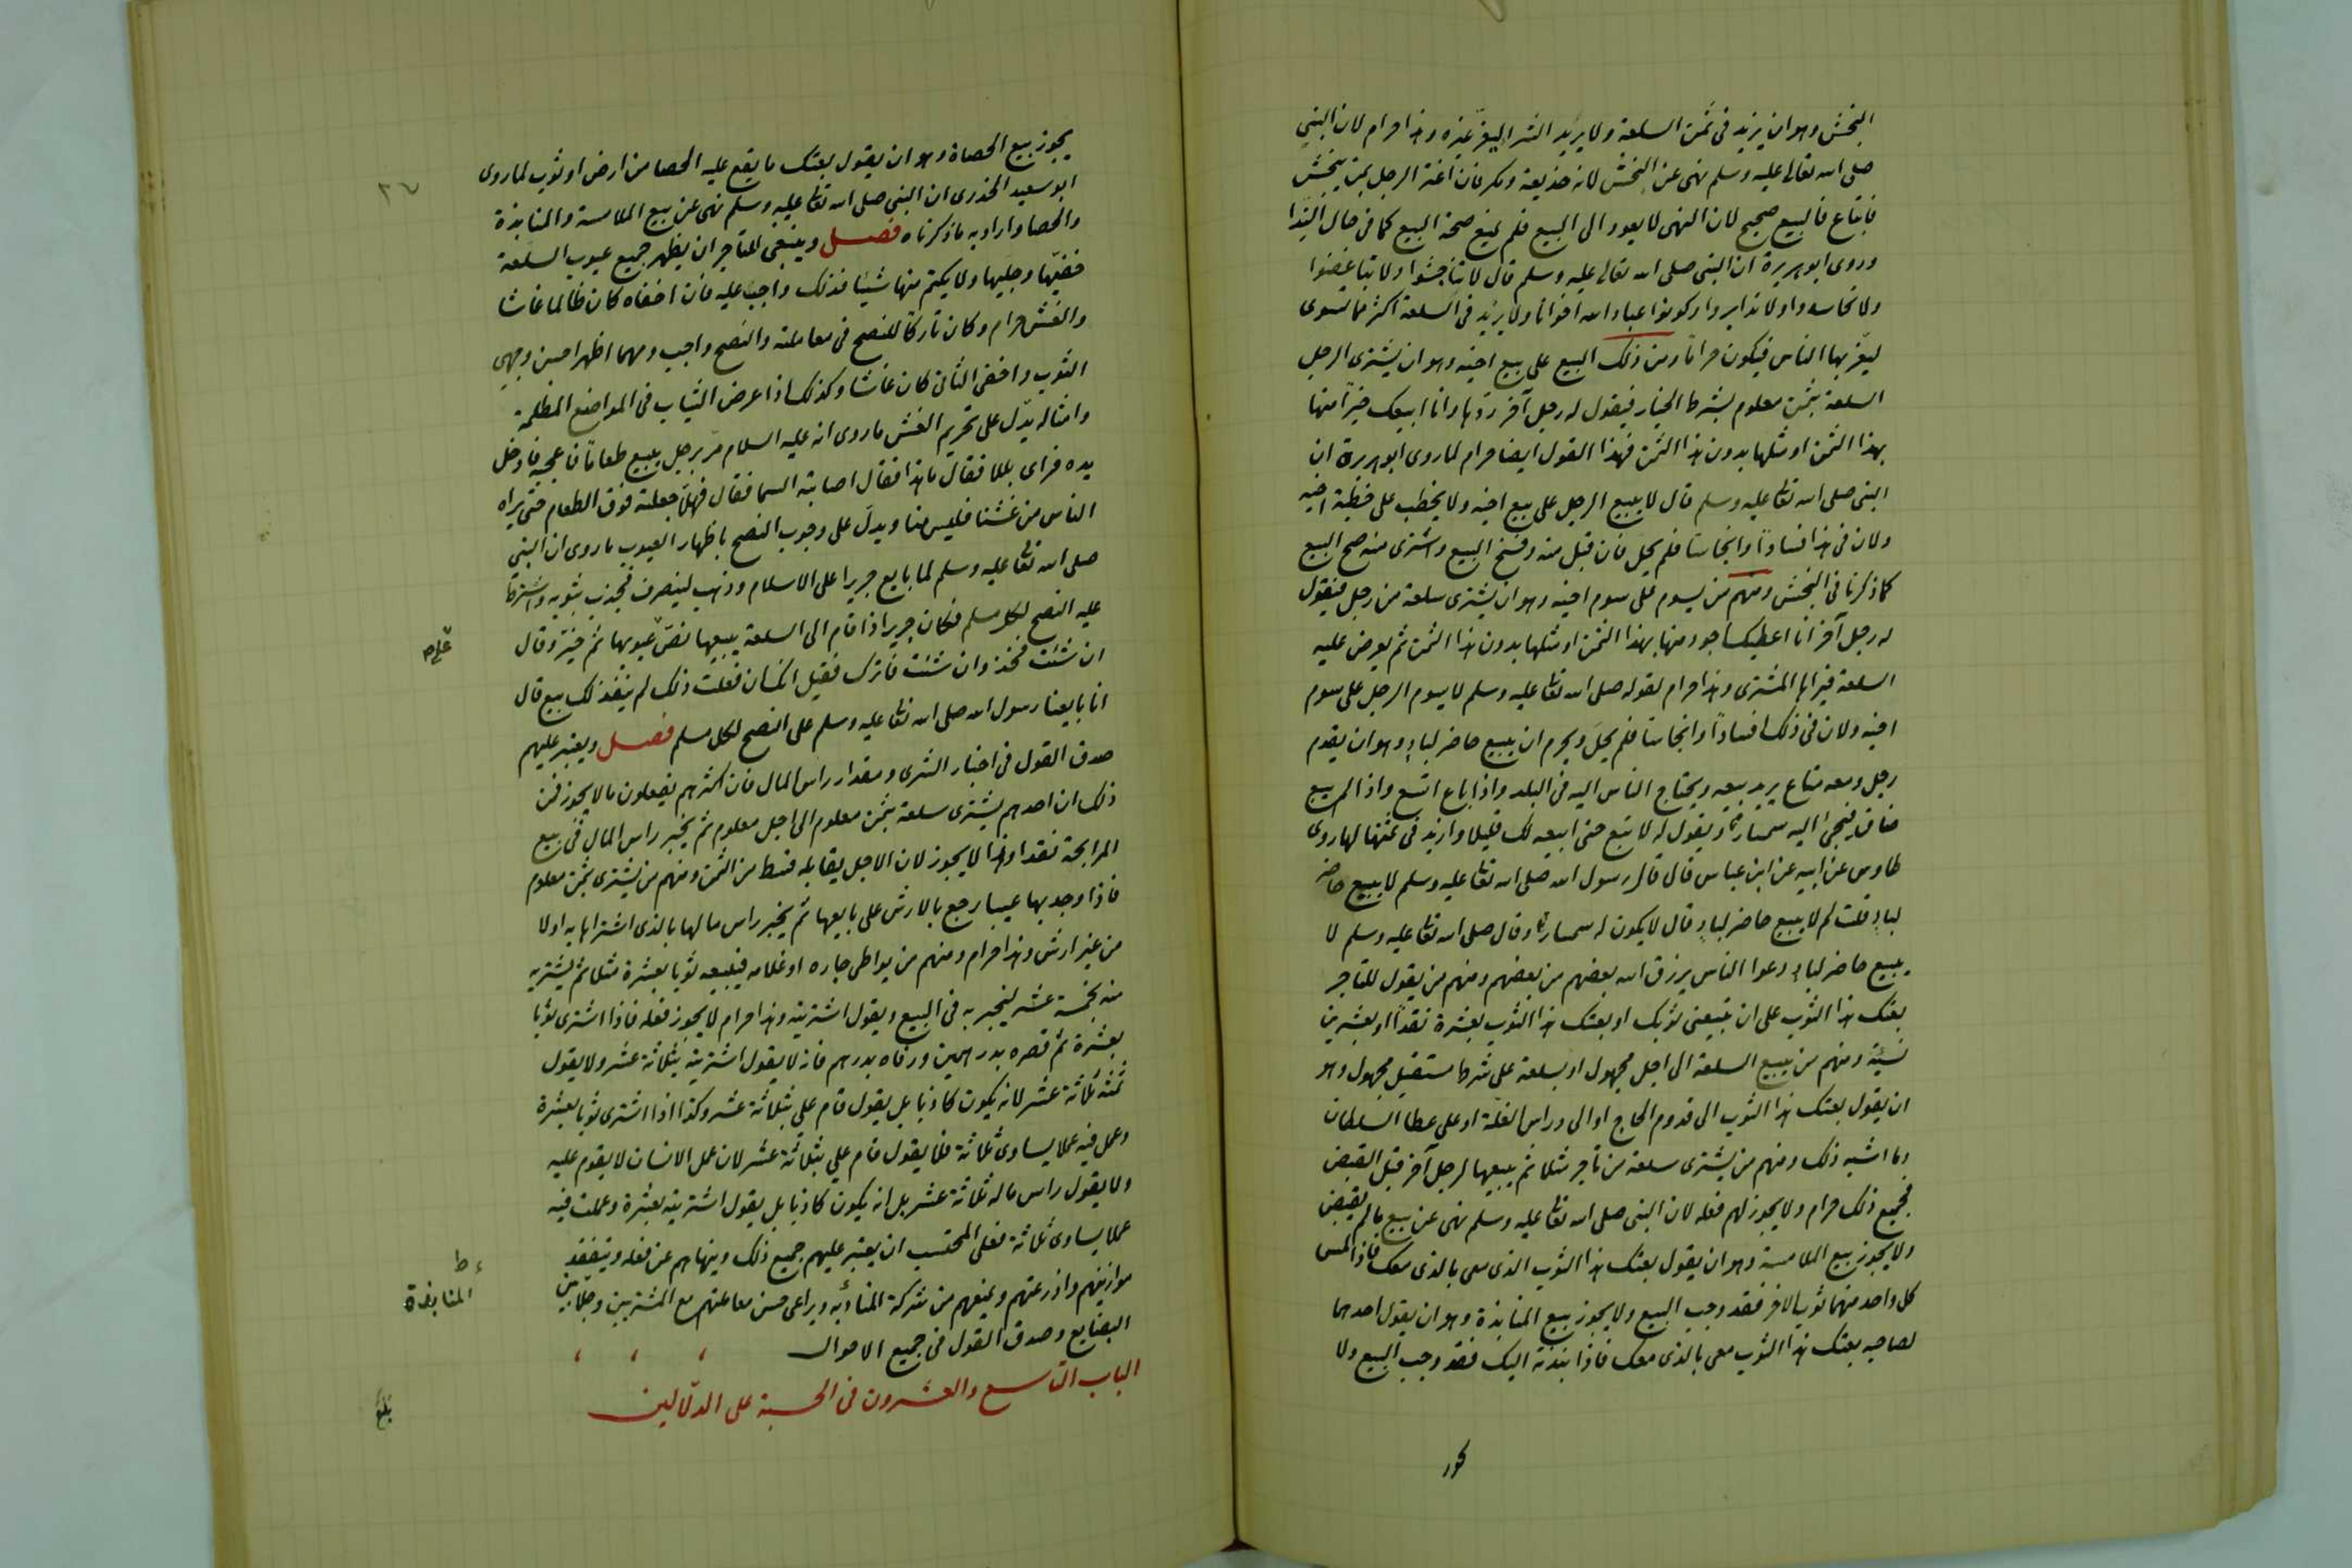 النجش وهو ان يزيد فى ثمن السلعة ولا يريد الشرا ليغرّ غيره وهذا حرام لان النبى
صلى الله تعالى عليه وسلم نهى عن النجش لانه خذيعة ومكر فان اغتر الرجل بمن ينجش
فابتاع فالبيع صحيح لان النهى لا يعود الى البيع فلم يمنع صحة البيع كما فى حال الندا
وروى ابو هريرة ان النبى صلى الله تعالى عليه وسلم قال لا تناجشوا ولا تباغضوا
ولا تحاسدوا ولا تدابروا وكونوا عباد الله اخوانا ولا يزيد فى السلعة اكثر مما تسوى
ليغر بها الناس فيكون حراماً ومن ذلك البيع على بيع اخيه وهو ان يشترى الرجل
السلعة بثمن معلوم بشرط الخيار فيقول له رجل آخر ردّها وانا ابيعك خيراً منها
بهذا الثمن او مثلها بدون هذا الثمن فهذا القول ايضا حرام لما روى ابو هريرة ان
النبى صلى الله تعا عليه وسلم قال لا يبيع الرجل على بيع اخيه ولا يخطب على خطبة اخيه
ولان فى هذا فساداً وانجاسا فلم يحلّ فان قبل منه وفسخ البيع واشترى منه صح البيع
كما ذكرنا فى النجش ومنهم من يسوم على سوم اخيه وهو ان يشترى سلعة من رجل فيقول
له رجل آخر انا اعطيك اجود منها بهذا الثمن او مثلها بدون هذا الثمن ثم يعرض عليه
السلعة فيراها المشترى وهذا حرام لقوله صلى الله تعا عليه وسلم لا يسوم الرجل على سوم
اخيه ولان فى ذلك افساداً وانجاسا فلم يحلّ ويحرم ان يبيع حاضر لبادٍ وهو ان يقدم
رجل ومعه متاع يريد بيعه ويحتاج الناس اليه فى البلد واذا باع اتسع واذا لم يبيع
ضاق فيجى اليه سمسار ويقول له لا تبع حتى ابيعه لك قليلا وازيد فى ثمنها لما روى
طاوس عن ابيه عن ابن عباس قال قال رسول الله صلى الله تعا عليه وسلم لا يبيع حاضر
لبادٍ قلت لم لا يبيع حاضر لبادٍ قال لا يكون له سمسارا وقال صلى الله تعا عليه وسلم لا
يبيع حاضر لبادٍ دعوا الناس يرزق الله بعضهم من بعضهم ومنهم من يقول للتاجر
بعتك هذا الثوب على ان تبيعنى ثوبك او بعتك هذا الثوب بعشرة نقداً او بعشرين
نسيئة ومنهم من يبيع السلعة الى اجل مجهول او بسلعة على شرط مستقبل مجهول وهو
ان يقول بعتك هذا الثوب الى قدوم الحاج او الى دراس الغلّة او على عطا السلطان
وما اشبه ذلك ومنهم من يشترى سلعة من تاجر مثلا ثم يبيعها لرجل آخر قبل القبض
فجميع ذلك حرام ولا يجوز لهم فعله لان النبى صلى الله تعا عليه وسلم نهى عن بيع مالم يقبض
ولا يجوز بيع الملامسة وهو ان يقول بعتك هذا الثوب الذى معى بالذى معك فاذا لمس
كل واحد منهما ثوب الاخر فقد وجب البيع ولا يجوز بيع المنابذة وهو ان يقول احدهما
لصاحبه بعتك هذا الثوب معى بالذى معك فاذا نبذته اليك فقد وجب البيع ولا
يجوز بيع الحصاة وهو ان يقول بعتك ما يقع عليه الحصا من ارض او ثوب لما روى
ابو سعيد الخذرى ان النبى صلى الله تعا عليه وسلم نهى عن بيع الملامسة والمنابذة
والحصا واراد به ما ذكرناه فصل وينبغى للتاجر ان يظهر جميع عيوب السلعة
خفيّها وجليها ولا يكتم منها شيئا فذلك واجب عليه فان اخفاه كان ظالما غاشا
والغش حرام وكان تاركاً للنصح فى معاملته والنصح واجب ومهما اظهر احسن وجهى
الثوب واخفى الثانى كان غاشا وكذلك اذا عرض الثياب فى المواضع المظلمة
وامثاله يدّل على تحريم الغش ما روى انه عليه السلام مرّ برجل يبيع طعاماً فاعجبه فادخل
يده فراى بللا فقال ما هذا فقال اصابته السما فقال فهلّا جعلته فوق الطعام حتى يراه
الناس من غشنا فليس منا ويدلّ على وجوب النصح باظهار العيوب ما روى ان النبى
صلى الله تعا عليه وسلم لما بايع جريرا على الاسلام وذهب لينصرف فجذب بثوبه واشترط
عليه النصح لكل مسلم فكان جرير اذا قام الى السلعة يبيعها نصّ عيوبها ثم خيّر وقال
ان شئت فخذ وان شئت فاترك فقيل انك ان فعلت ذلك لم ينفذ لك بيع قال
انا بايعنا رسول الله صلى الله تعا عليه وسلم على النصح لكل مسلم فصل ويعتبر عليهم
صدق القول فى اخبار الشرى ومقدار راس المال فان اكثرهم يفعلون ما لا يجوز فمن
ذلك ان احدهم يشترى سلعة بثمن معلوم الى اجل معلوم ثم يخبر راس المال فى بيع
المرابحة نقدا وهذا لا يجوز لان الاجل يقابله قسط من الثمن ومنهم من يشترى بثمن معلوم
فاذا وجد بها عيبا رجع بالارش على بايعها ثم يخبر راس مالها بالذى اشتراها به اولا
من غير ارش وهذا حرام ومنهم من يواطى جاره او غلامه فيبيعه ثوبا بعشرة مثلا ثم يشتريه
منه بخمسة عشر ليخبر به فى البيع ويقول اشتريته وهذا حرام لا يجوز فعله فاذا اشترى ثوبا
بعشرة ثم قصره بدرهمين ورفاه بدرهم فانه لا يقول اشتريته بثلاثة عشر ولا يقول
ثمنه ثلاثة عشر لانه يكون كاذبا بل يقول قام علي بثلاثة عشر وكذا اذا اشترى ثوبا بعشرة
وعمل فيه عملا يساوى ثلاثة فلا يقول قام علي بثلاثة عشر لان عمل الانسان لا يقوم عليه
ولا يقول راس ماله ثلاثة عشر بل انه يكون كاذبا بل يقول اشتريته بعشرة وعملت فيه
عملا يساوى ثلاثة فعلى المحتسب ان يعتبر عليهم جميع ذلك وينهاهم عن فعله ويتفقد
موازينهم واذرعتهم ويمنعهم من شركة المنادية ويراعى حسن معاملتهم مع المشتريين وجلابين
البضايع وصدق القول فى جميع الاحوال
الباب التاسع والعشرون فى الحسبة على الدلّالين
المنابذة
بلغ